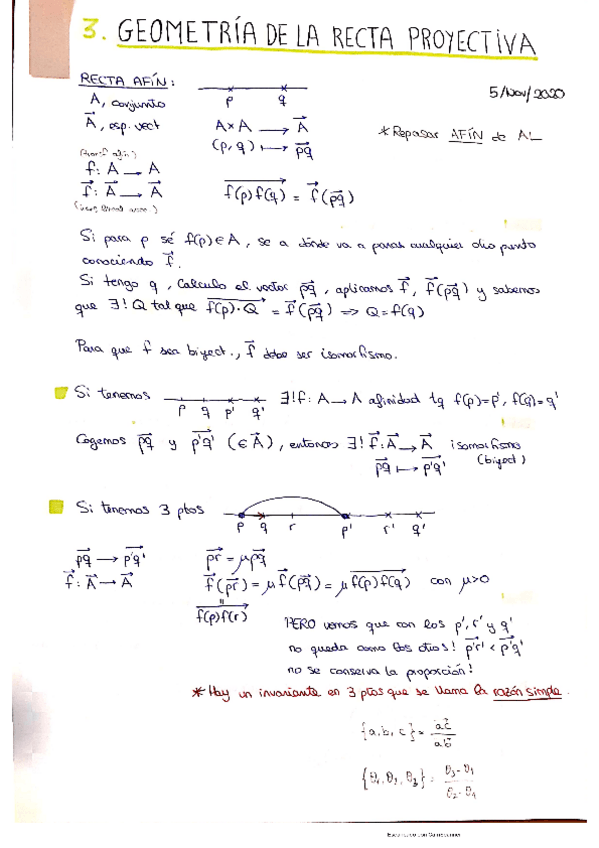 3. GEOMETRÍA DE LA RECTA PROYECTIVA
5/Nov/2020
RECTA AFÍN:
p q
A, conjunto
A⃗, esp. vect
A×A ⟶ A⃗
(p, q) ⟼ p͞q⃗
*Repasar AFÍN de A
f: A ⟶ A
f⃗: A⃗ ⟶ A⃗
f(p)f(q)⃗ = f⃗(pq⃗)
Si para p sé f(p) ∈ A, se a dónde va a parar cualquier otro punto
conociendo f⃗.
Si tengo q, calculo el vector pq⃗, aplicamos f⃗, f⃗(pq⃗) y sabemos
que ∃! Q tal que f(p)·Q⃗ = f⃗(pq⃗) ⟹ Q = f(q)
Para que f sea biyect., f⃗ debe ser isomorfismo.
Si tenemos p q p' q' ∃! f: A ⟶ A afinidad tq f(p)=p', f(q)=q'
Cogemos pq⃗ y p'q'⃗ (∈ A⃗), entonces ∃! f⃗: A⃗ ⟶ A⃗ isomorfismo
pq⃗ ⟼ p'q'⃗ (biyect)
Si tenemos 3 ptos p q r p' r' q'
pq⃗ ⟶ p'q'⃗
f⃗: A⃗ ⟶ A⃗
pr⃗ = μpq⃗
f⃗(pr⃗) = μf⃗(pq⃗) = μ f(p)f(q)⃗ con μ>0
=
f(p)f(r)⃗
PERO vemos que con los p', r' y q'
no queda como los otros! p'r'⃗ < p'q'⃗
no se conserva la proporción!
*Hay un invariante en 3 ptos que se llama la razón simple.
{a, b, c} = ac⃗/ab⃗
{θ₁, θ₂, θ₃} = (θ₃-θ₁)/(θ₂-θ₁)
Escaneado con CamScanner